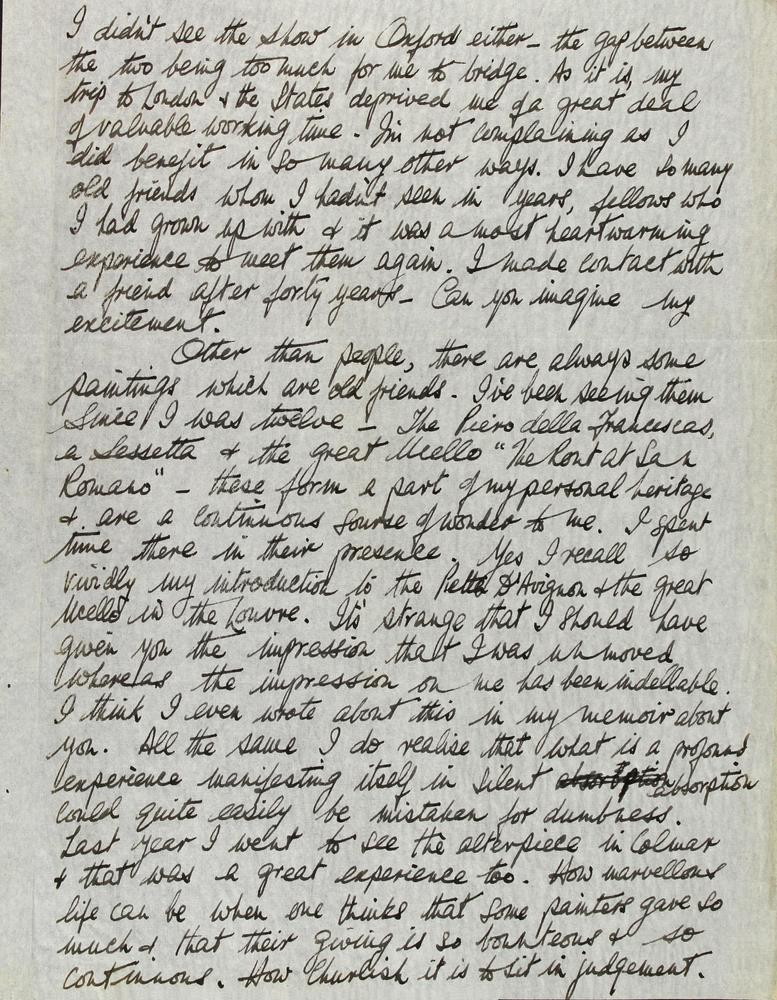 I didn't see the show in Oxford either – the gap between
the two being too much for me to bridge. As it is, my
trip to London & the States deprived me of a great deal
of valuable working time – I'm not complaining as I
did benefit in so many other ways. I have so many
old friends whom I hadn't seen in years, fellows who
I had grown up with & it was a most heartwarming
experience to meet them again. I made contact with
a friend after forty years – Can you imagine my
excitement.
Other than people, there are always some
paintings which are old friends. I've been seeing them
since I was twelve – The Piero della Francescas,
a Sassetta & the great Ucello "The Rout at San
Romano" – these form a part of my personal heritage
& are a continuous sourse of wonder to me. I spent
time there in their presence. Yes I recall so
vividly my introduction to the Pietta D'Avignon & the great
Ucello in the Louvre. It's strange that I should have
given you the impression that I was unmoved
whereas the impression on me has been indellable.
I think I even wrote about this in my memoir about
you. All the same I do realise that what is a profound
experience manifesting itself in silent absorbtion absorption
could quite easily be mistaken for dumbness.
Last year I went to see the alterpiece in Colmar
& that was a great experience too. How marvellous
life can be when one thinks that some painters gave so
much & that their giving is so bounteous & so
continuous. How churlish it is to sit in judgement.